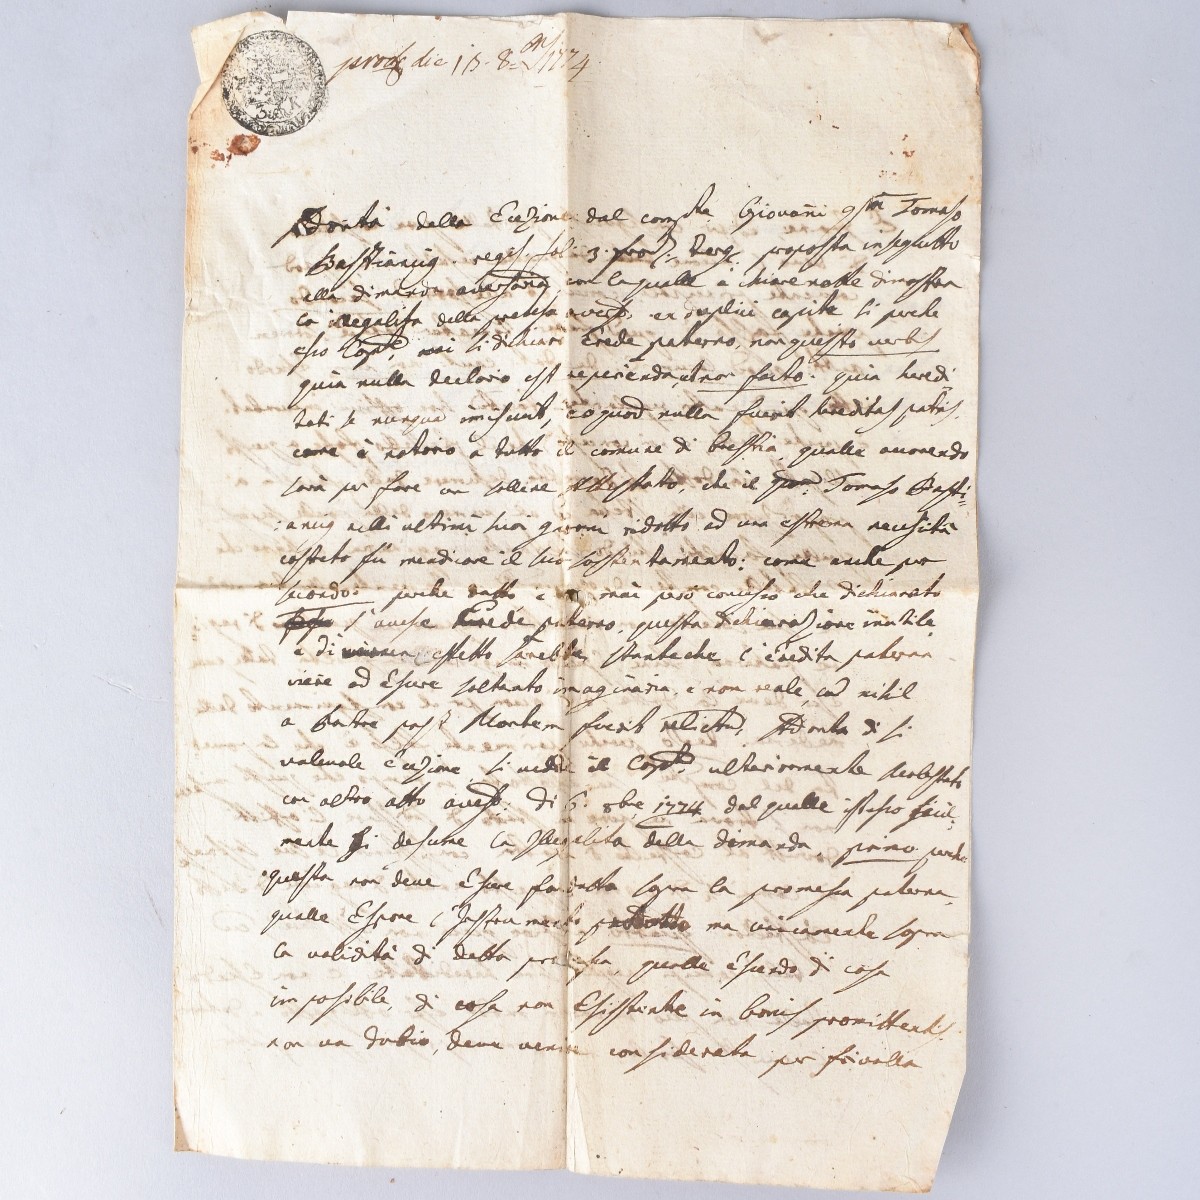 die 15. 8bris 1774.
Adonta della Ecezione dal comp.te Giovañi qm Tomaso
Bastianig. regis. fol. 3. proposta in seguitto
alla dimanda aversaria con la qualle a chiare notte dimostra
la illegalita della pretesa avers. ex duplici capite si perche
esso Comp.te mai si dichiarò Erede paterno, non questo verbis
quia nulla declario est reperienda, et non facto. quia heredi
tati se nunqua imiscuit, eo quod nulla fuerit hereditas patris,
come è notorio a tutto il comune di qualle avorendo
sarà per fare un sollene Attestato, che il qm Tomaso Basti=
:anig nelli ultimi suoi giorni ridotto ad una estrema necesità
costreto fù mendicare il suo sostentamento: come anche per
secondo: perche datto e mai però concesso che dichiarato
s'avese Erede paterno, questa dichiarazione inutile,
e di effetto sarebbe stanteche l'eredita paterna
viene ad Esere soltanto imaginaria, e non reale, cum nihil
a Patre post Mortem fuerit relictum, Adonta di si
valevole ecezione si vedde il Comp.te ulteriormente Molestato
con altro atto avers. di 6. 8bre 1774 dal qualle istesso facil=
mente si desume la Illegalita della dimanda, primo perche
questa non deve Esere fondatta sopra la promessa paterna,
qualle Espone l'Instrumento prodotto ma unicamente sopra
la validità di detta promessa, qualle esendo di cosa
imposibile, di cosa non Esistente in bonis promittentis.
non va dubio, deve venire considerata per frivolla